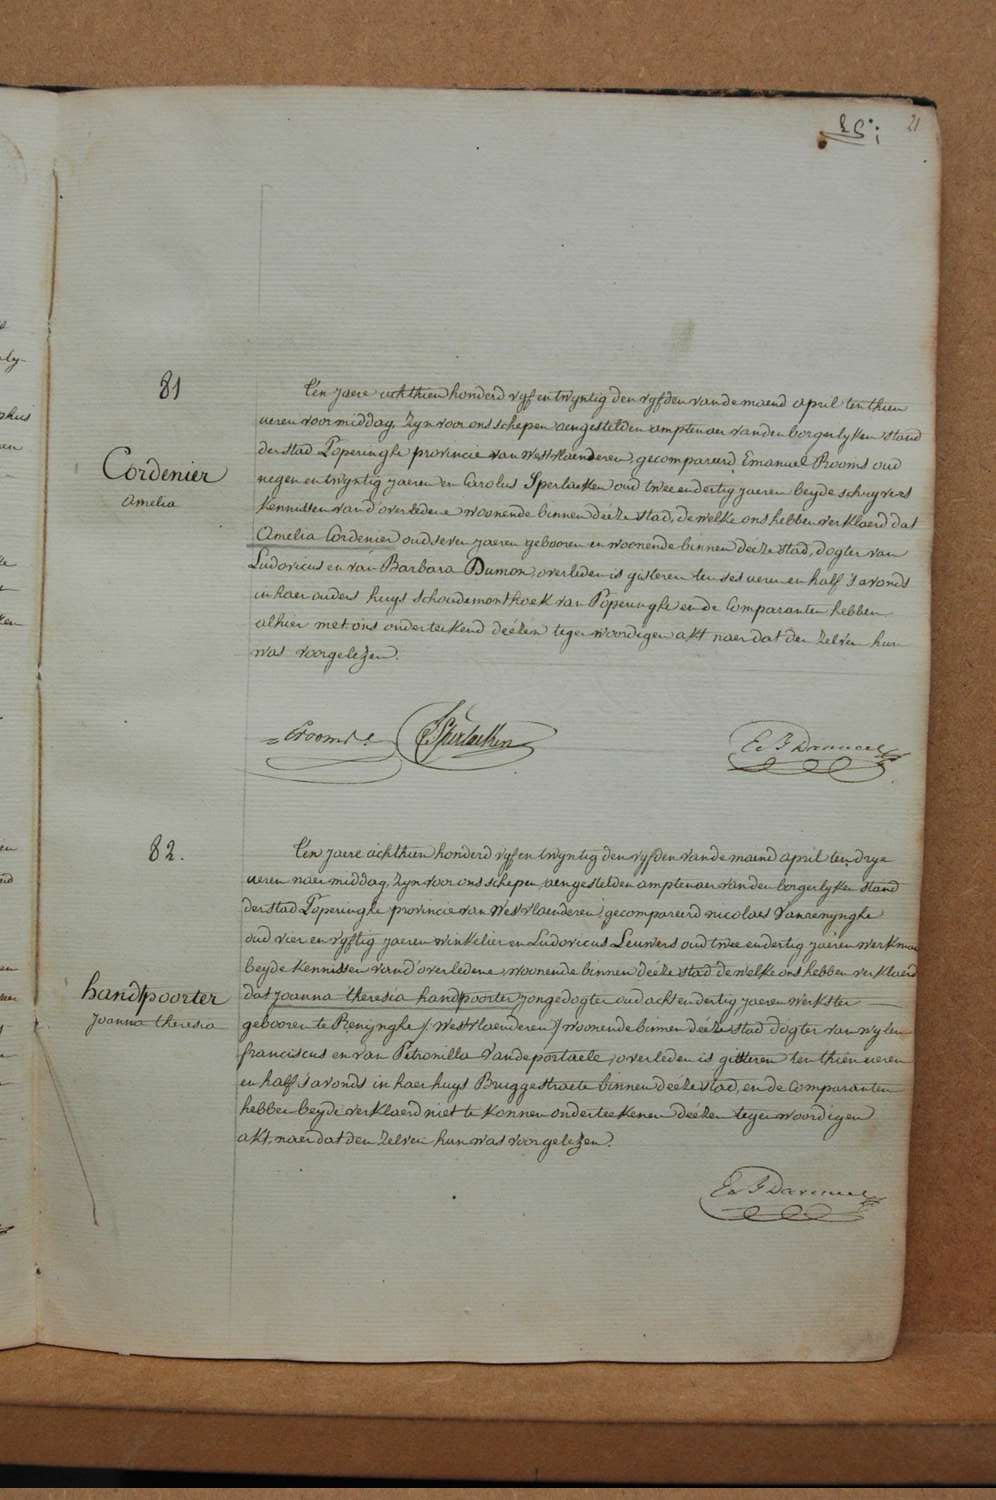 21
81
Cordenier
Amelia
t'en jaere achthien honderd vyf en twyntig den vyfden van de maend april ten thien
ueren voormiddag, zyn voor ons schepen aengestelden amptenaer van den borgerlyken stand
der stad Poperinghe provincie van Westvlaenderen, gecompareerd Emanuel Prooms oud
negen en twyntig jaeren en Carolus Sperlaeken oud twee en dertig jaeren beyde schryvers
kennissen van d'overledene woonende binnen deéze stad, de welke ons hebben verklaerd dat
Amelia Cordenier oud seven jaeren gebooren en woonende binnen deéze stad, dogter van
Ludovicus en van Barbara Dumon, overleden is gisteren ten ses ueren en half s'avonds
in haer ouders huys Schoudemonthoek van Poperinghe en de Comparanten hebben
alhier met ons onderteekend deézen tegenwoordigen akt naer dat den zelven hun
was voorgelezen.
Sperlaeken
82.
handtpoorter
Joanna theresia
t'en jaere achthien honderd vyf en twyntig den vyfden van de maend april ten drye
ueren naermiddag, zyn voor ons schepen, aengestelden amptenaer van den borgerlyken stand
der stad Poperinghe provincie van Westvlaenderen, gecompareerd nicolaes Vanrenynghe
oud vier en vyftig jaeren winkelier en Ludovicus Leuwers oud twee en dertig jaeren werkman
beyde kennissen van d'overledene, woonende binnen deéze stad de welke ons hebben verklaerd
dat Joanna theresia handtpoorter jongedogter oud acht en dertig jaeren werkster
gebooren te Renynghe /Westvlaenderen/ woonende binnen deéze stad dogter van wylen
franciscus en van Petronilla Vandeportaele, overleden is gisteren ten thien ueren
en half s'avonds in haer huys Bruggestraete binnen deéze stad, en de Comparanten
hebben beyde verklaerd niet te konnen onderteekenen deézen tegenwoordigen
akt, naer dat den zelven hun was voorgelezen.